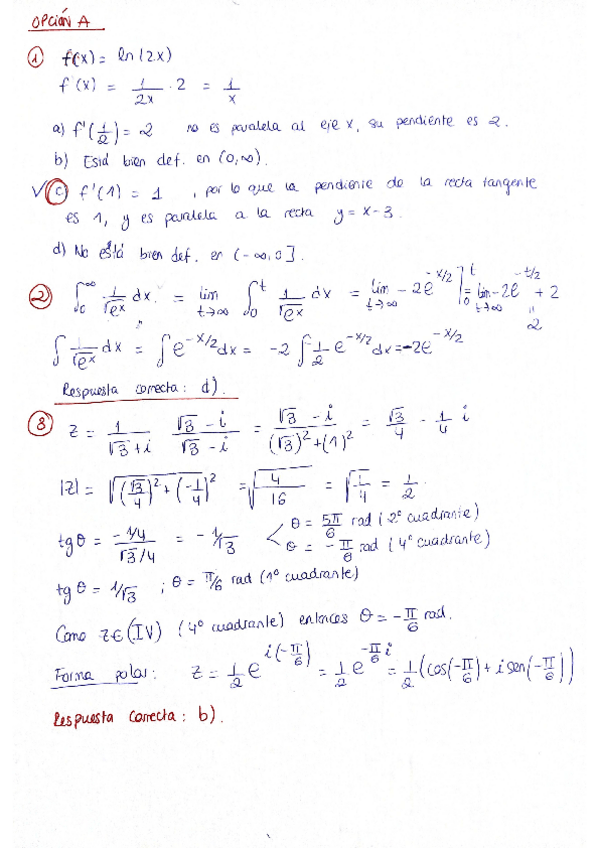 OPCIÓN A
① f(x) = ln(2x)
f'(x) = 1/2x · 2 = 1/x
a) f'(1/2) = 2 no es paralela al eje x, su pendiente es 2.
b) Está bien def. en (0,∞).
√ c) f'(1) = 1 , por lo que la pendiente de la recta tangente
es 1, y es paralela a la recta y = x-3.
d) No está bien def. en (-∞,0].
② ∫₀^∞ 1/√(e^x) dx = lim t→∞ ∫₀^t 1/√(e^x) dx = lim t→∞ -2e^(-x/2) ]₀^t = lim t→∞ -2e^(-t/2) + 2 = 2
∫ 1/√(e^x) dx = ∫ e^(-x/2) dx = -2 ∫ 1/2 e^(-x/2) dx = -2e^(-x/2)
Respuesta correcta: d).
③ z = 1/(√3+i) (√3-i)/(√3-i) = (√3-i)/((√3)²+(1)²) = √3/4 - 1/4 i
|z| = √((√3/4)²+(-1/4)²) = √(4/16) = √(1/4) = 1/2.
tg θ = (-1/4)/(√3/4) = -1/√3 < θ = 5π/6 rad (2º cuadrante)
θ = -π/6 rad (4º cuadrante)
tg θ = 1/√3 ; θ = π/6 rad (1º cuadrante)
Como z∈(IV) (4º cuadrante) entonces θ = -π/6 rad.
Forma polar: z = 1/2 e^(i(-π/6)) = 1/2 e^(-π/6 i) = 1/2 (cos(-π/6) + i sen(-π/6))
Respuesta correcta: b).